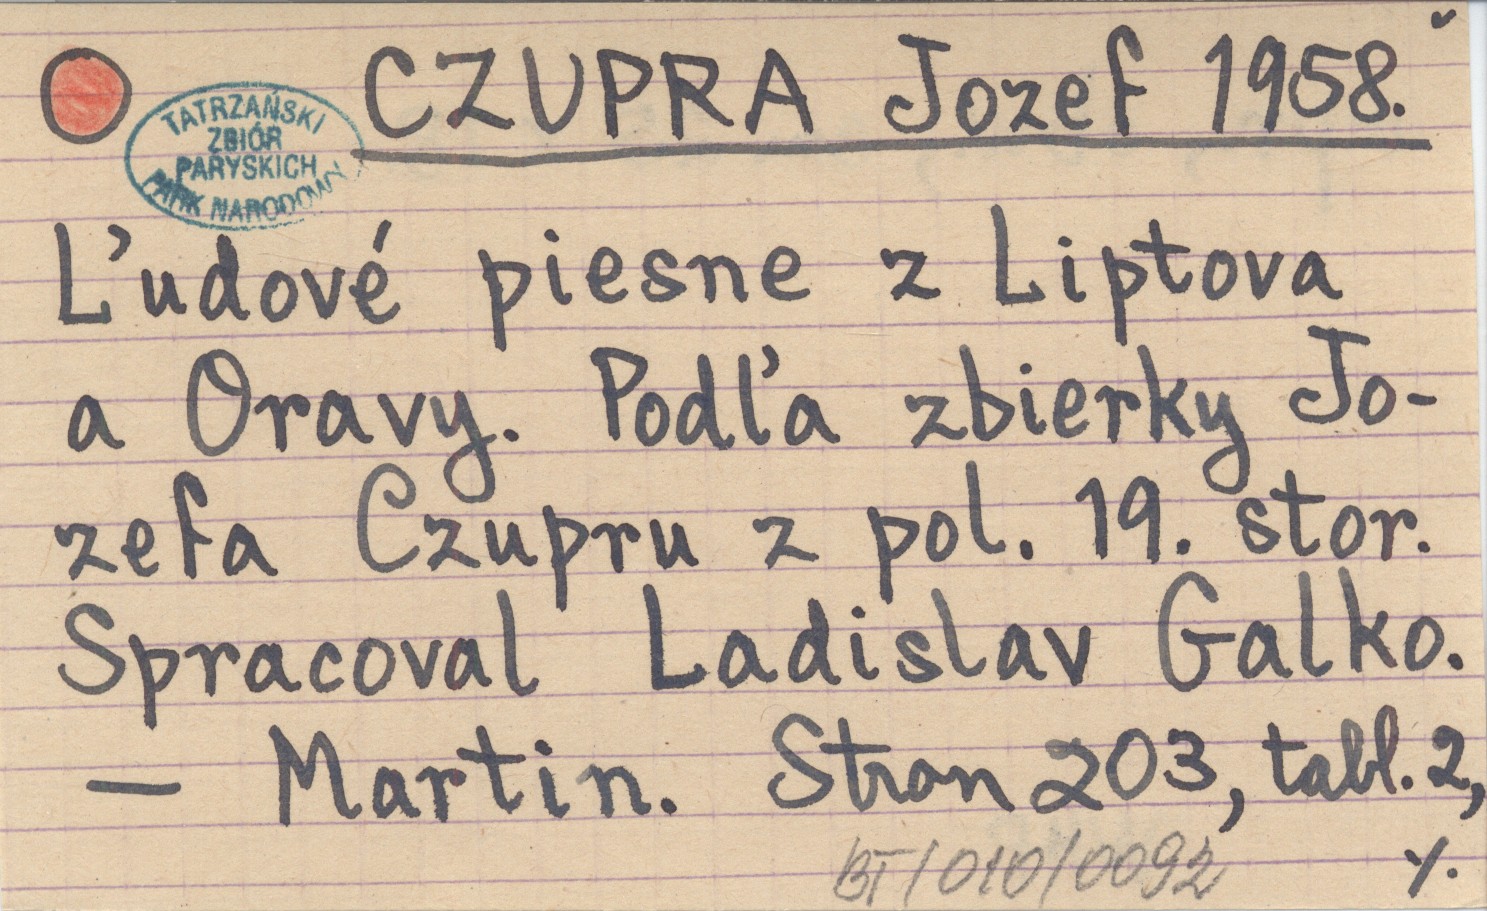 CZUPRA Jozef 1958.
TATRZAŃSKI
ZBIÓR
PARYSKICH
PARK NARODOWY
Ľudové piesne z Liptova
a Oravy. Podľa zbierky Jo-
zefa Czupru z pol. 19. stor.
Spracoval Ladislav Galko.
— Martin. Stron 203, tabl. 2,
BT/010/0092
./.